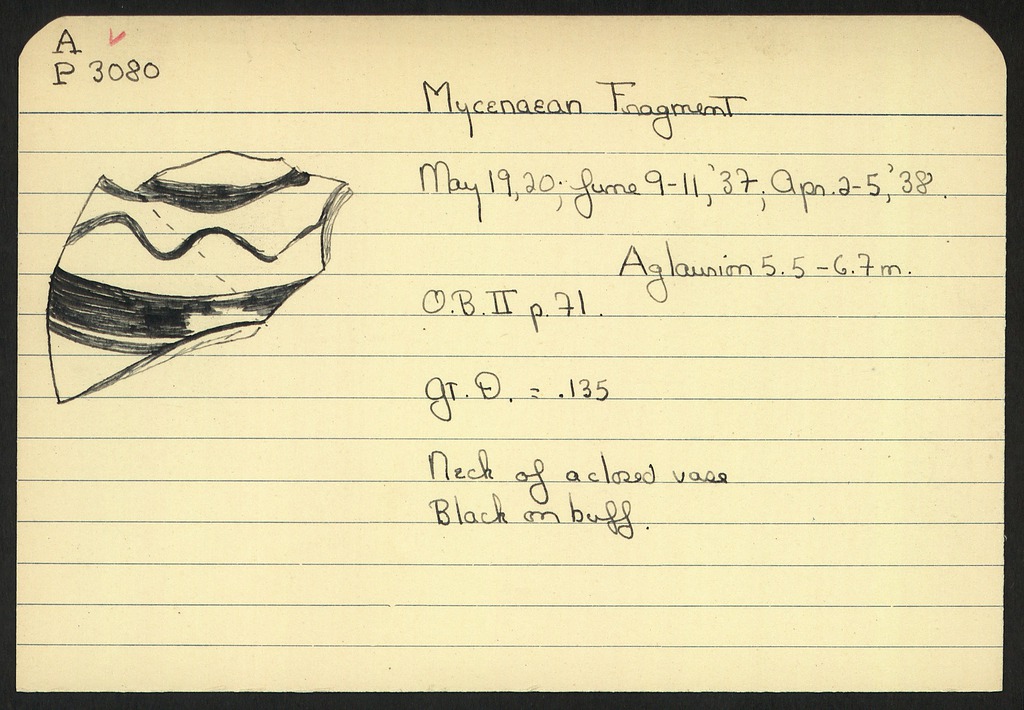 A ✓
P 3080
Mycenaean Fragment
May 19, 20; June 9-11, '37; Apr. 2-5, '38.
Aglaurion 5.5 - 6.7 m.
O.B. II p. 71.
gr. D. = .135
Neck of a closed vase
Black on buff.